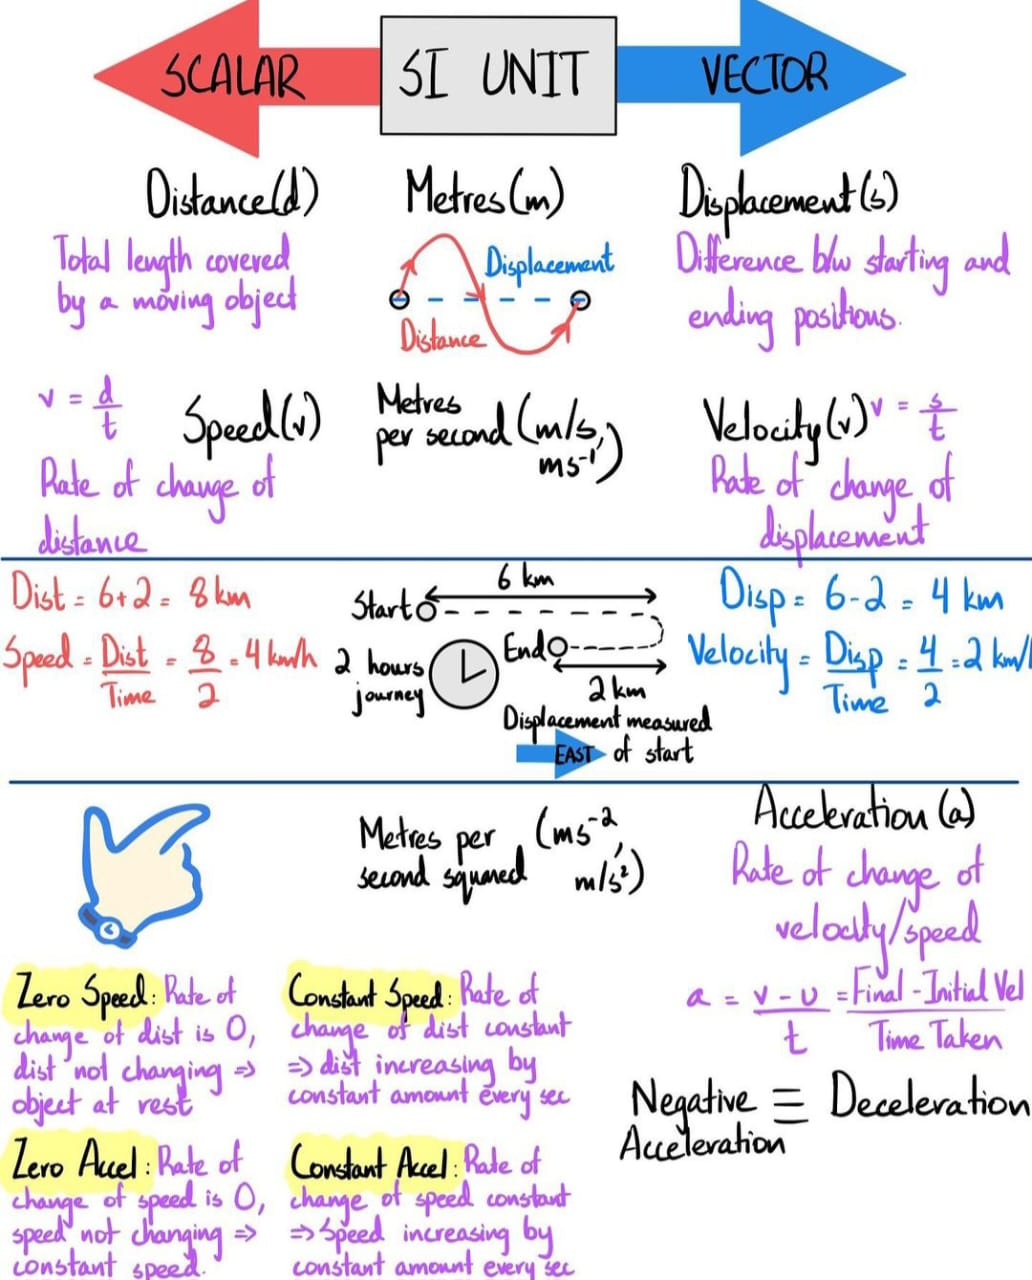 SCALAR
SI UNIT
VECTOR
Distance(d)
Metres(m)
Displacement(s)
Total length covered
by a moving object
Displacement
Distance
Difference b/w starting and
ending positions.
v = d/t
Speed(v)
Metres
per second (m/s,
ms⁻¹)
Velocity(v)
v = s/t
Rate of change of
distance
Rate of change of
displacement
Dist = 6+2 = 8km
Speed = Dist/Time = 8/2 = 4km/h
6 km
Start
End
2 hours
journey
2 km
Displacement measured
EAST of start
Disp = 6-2 = 4 km
Velocity = Disp/Time = 4/2 = 2 km/
Metres per
second squared
(ms⁻²,
m/s²)
Acceleration (a)
Rate of change of
velocity/speed
a = v-u/t = Final-Initial Vel/Time Taken
Negative ≡ Deceleration
Acceleration
Zero Speed: Rate of
change of dist is 0,
dist not changing ⇒
object at rest
Constant Speed: Rate of
change of dist constant
⇒ dist increasing by
constant amount every sec
Zero Accel: Rate of
change of speed is 0,
speed not changing ⇒
constant speed.
Constant Accel: Rate of
change of speed constant
⇒ Speed increasing by
constant amount every sec